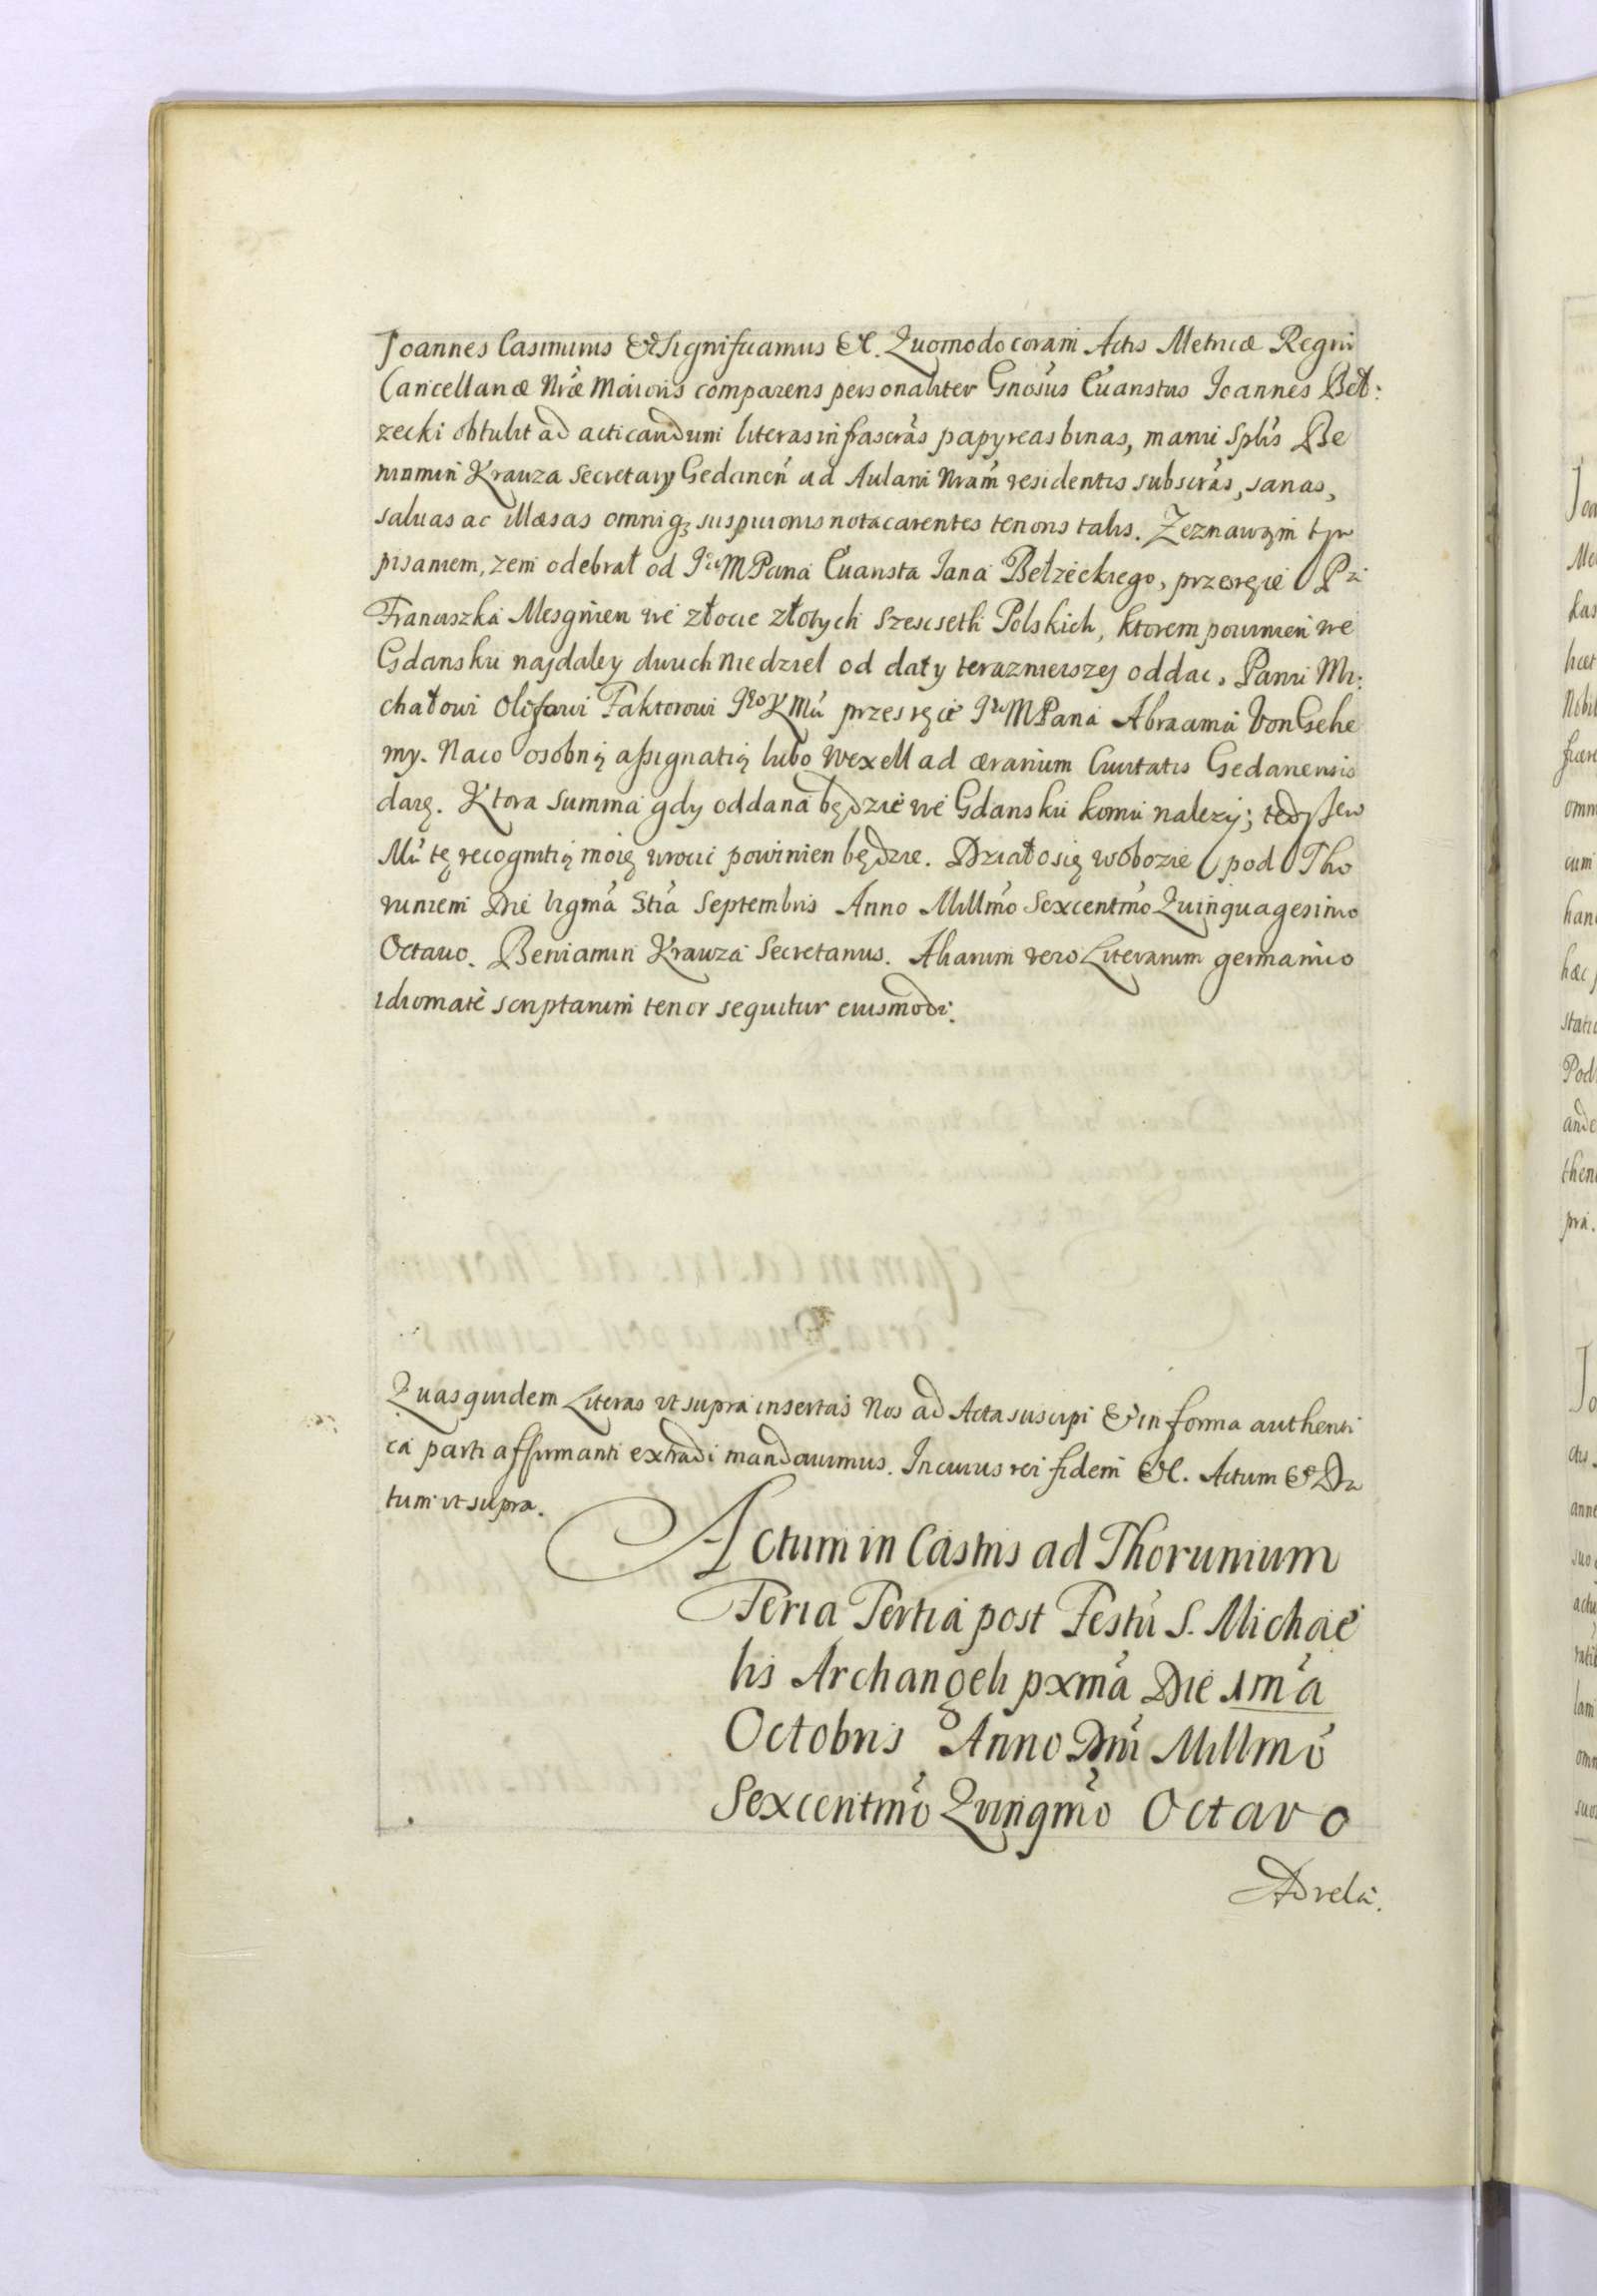 Joannes Casimirus & Significamus &c. Quomodo coram Actis Metricæ Regni
Cancellariæ Nræ Maioris comparens personaliter Gnosus Euaristus Joannes Beł:
zecki obtulit ad acticandum literas infrascras papyreas binas, manu Splis Be
niamin Krauza Secretary Gedanen ad Aulam Nram residentis subscras, sanas,
saluas ac illæsas omniq; suspicionis nota carentes tenoris talis. Zeznawam tym
pisaniem, zem odebrał od Jeo M Pana Euarista Jana Bełzeckiego, przesręcie P:
Franciszka Mesgnien we złocie złotych Szescseth Polskich, ktorem powinien we
Gdansku najdaley dwuch niedziel od daty terazniejszej oddac, Panu Mi:
chałowi Faktorowi Jeo K Mci przesręcie Jeo M Pana Abraama Von Gehe
my. Naco osobną assignatią lubo Wexell ad ærarium Ciuitatis Gedanensis
daię. Ktora Summa gdy oddana będzie we Gdansku komu nalezy; tedy Jeo
Mć tę recognitią moię wrocic powinien będzie. Działo się w obozie pod Tho
runiem Die vigma 8tia Septembris Anno Millmo Sexcentmo Quinquagesimo
Octauo. Beniamin Krauza Secretarius. Aliarum vero Literarum germanico
idiomate scriptarum tenor sequitur eiusmodi.
Quasquidem Literas ut supra insertas Nos ad Acta suscipi & in forma authenti
ca parti affirmanti extradi mandauimus. In cuius rei fidem &c. Actum & Da
tum ut supra.
Actum in Castris ad Thorunium
Feria Tertia post Festu S. Michaë
lis Archangeli pxma Die 1ma
Octobris Anno Dni Millmo
Sexcentmo Quinqmo Octavo